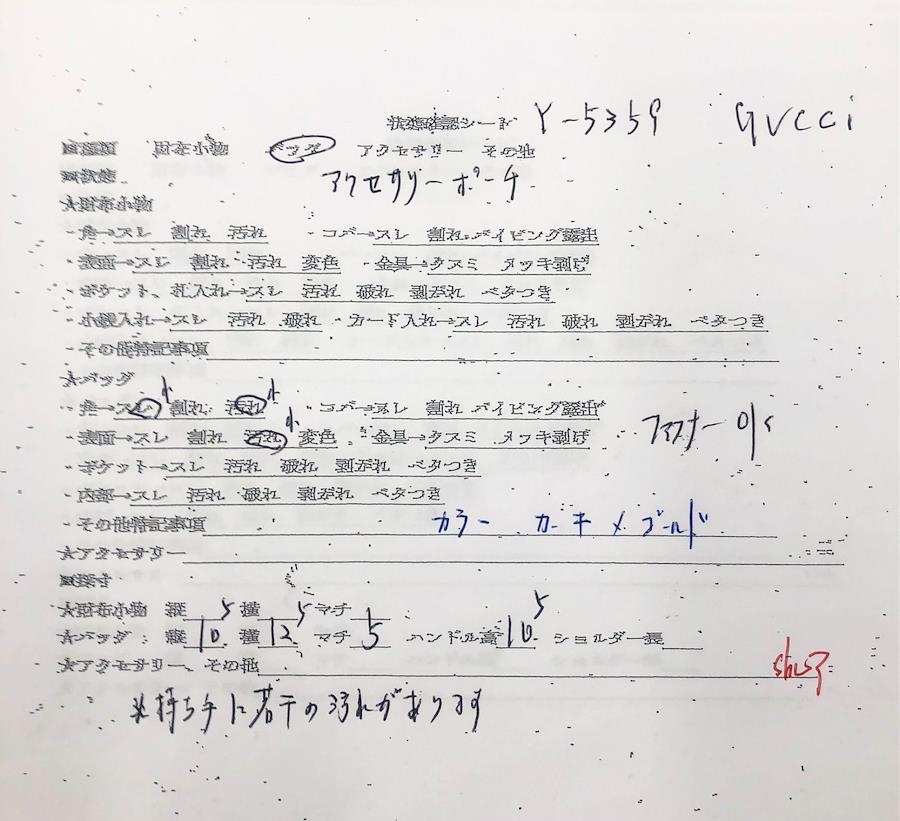 状態確認シード Y-5359 GUCCI
■種類 財布小物 バッグ アクセサリー その他
■状態 アクセサリーポーチ
★財布小物
・角→スレ 割れ 汚れ ・コバ→スレ 割れ パイピング露出
・表面→スレ 割れ 汚れ 変色 ・金具→クスミ メッキ剥げ
・ポケット、札入れ→スレ 汚れ 破れ 剥がれ ベタつき
・小銭入れ→スレ 汚れ 破れ ・カード入れ→スレ 汚れ 破れ 剥がれ ベタつき
・その他特記事項
★バッグ
・角→スレ 小 割れ 汚れ 小 ・コバ→スレ 割れ パイピング露出
・表面→スレ 割れ 汚れ 小 変色 ・金具→クスミ メッキ剥げ ファスナー OK
・ポケット→スレ 汚れ 破れ 剥がれ ベタつき
・内部→スレ 汚れ 破れ 剥がれ ベタつき
・その他特記事項 カラー カーキ × ゴールド
★アクセサリー
■採寸
★財布小物 縦 横 マチ
★バッグ: 縦 10.5 横 12.5 マチ 5 ハンドル高 10.5 ショルダー長
★アクセサリー、その他
※持ち手に若干の汚れがあります